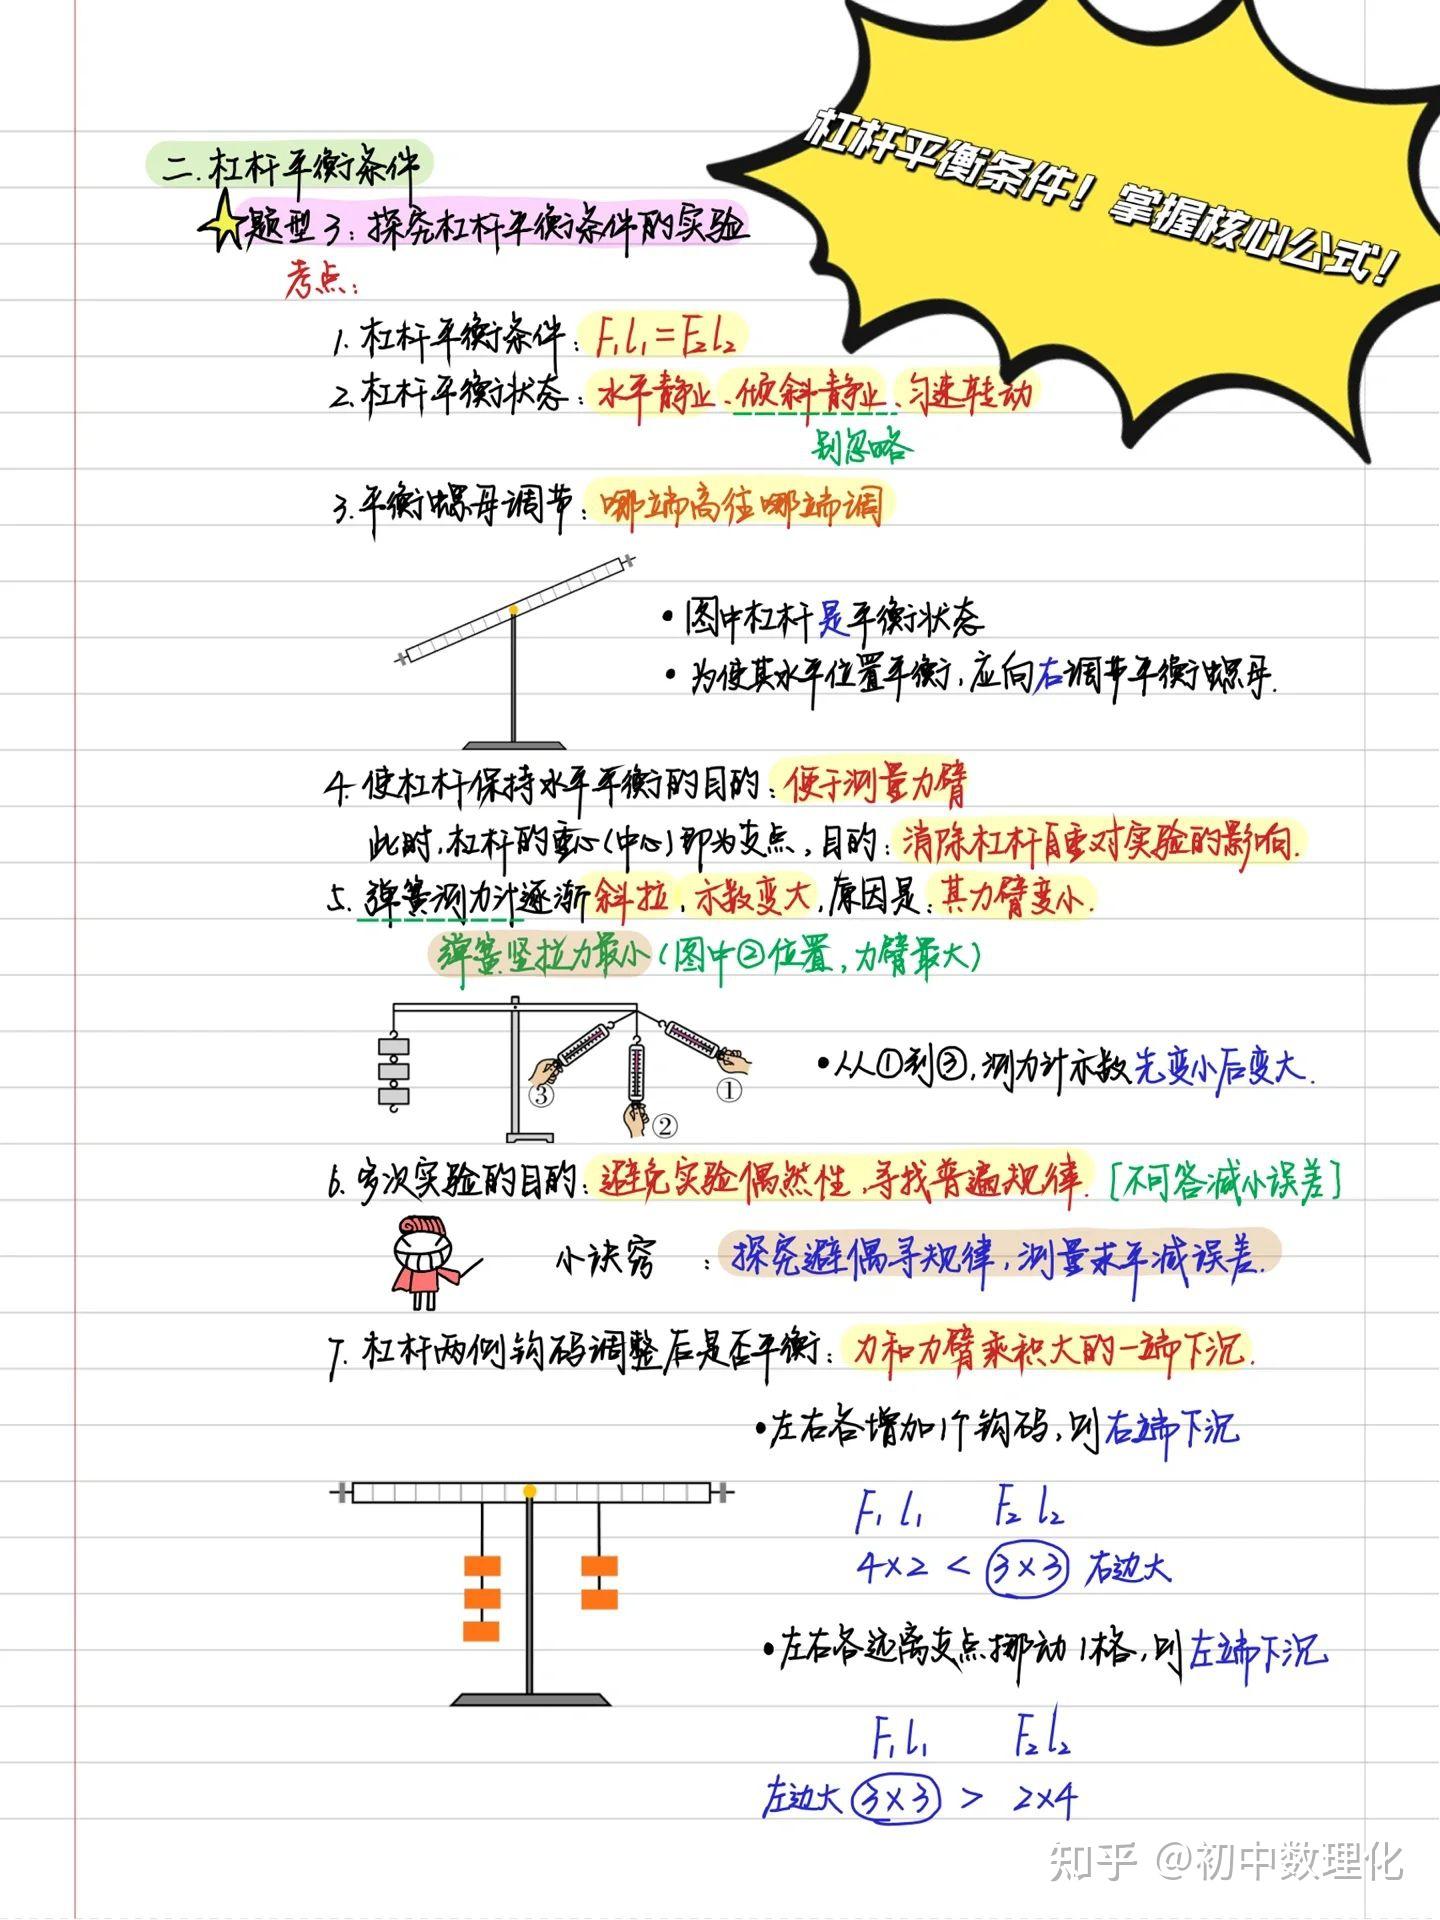 杠杆平衡条件！掌握核心公式！
二.杠杆平衡条件
题型3:探究杠杆平衡条件的实验
考点:
1.杠杆平衡条件:F₁l₁=F₂l₂
2.杠杆平衡状态:水平静止、倾斜静止、匀速转动
别忽略
3.平衡螺母调节:哪端高往哪端调
•图中杠杆是平衡状态
•为使其水平位置平衡,应向右调节平衡螺母.
4.使杠杆保持水平平衡的目的:便于测量力臂
此时,杠杆的重心(中心)即为支点,目的:消除杠杆自重对实验的影响.
5.弹簧测力计逐渐斜拉,示数变大,原因是:其力臂变小.
弹簧竖拉力最小(图中②位置,力臂最大)
③ ② ①
•从①到③,测力计示数先变小后变大.
6.多次实验的目的:避免实验偶然性,寻找普遍规律.[不可答减小误差]
小诀窍:探究避偶寻规律,测量求平减误差.
7.杠杆两侧钩码调整后是否平衡:力和力臂乘积大的一端下沉.
•左右各增加1个钩码,则右端下沉
F₁l₁ F₂l₂
4×2 < 3×3 右边大
•左右各远离支点挪动1格,则左端下沉
F₁l₁ F₂l₂
左边大 3×3 > 2×4
知乎 @初中数理化